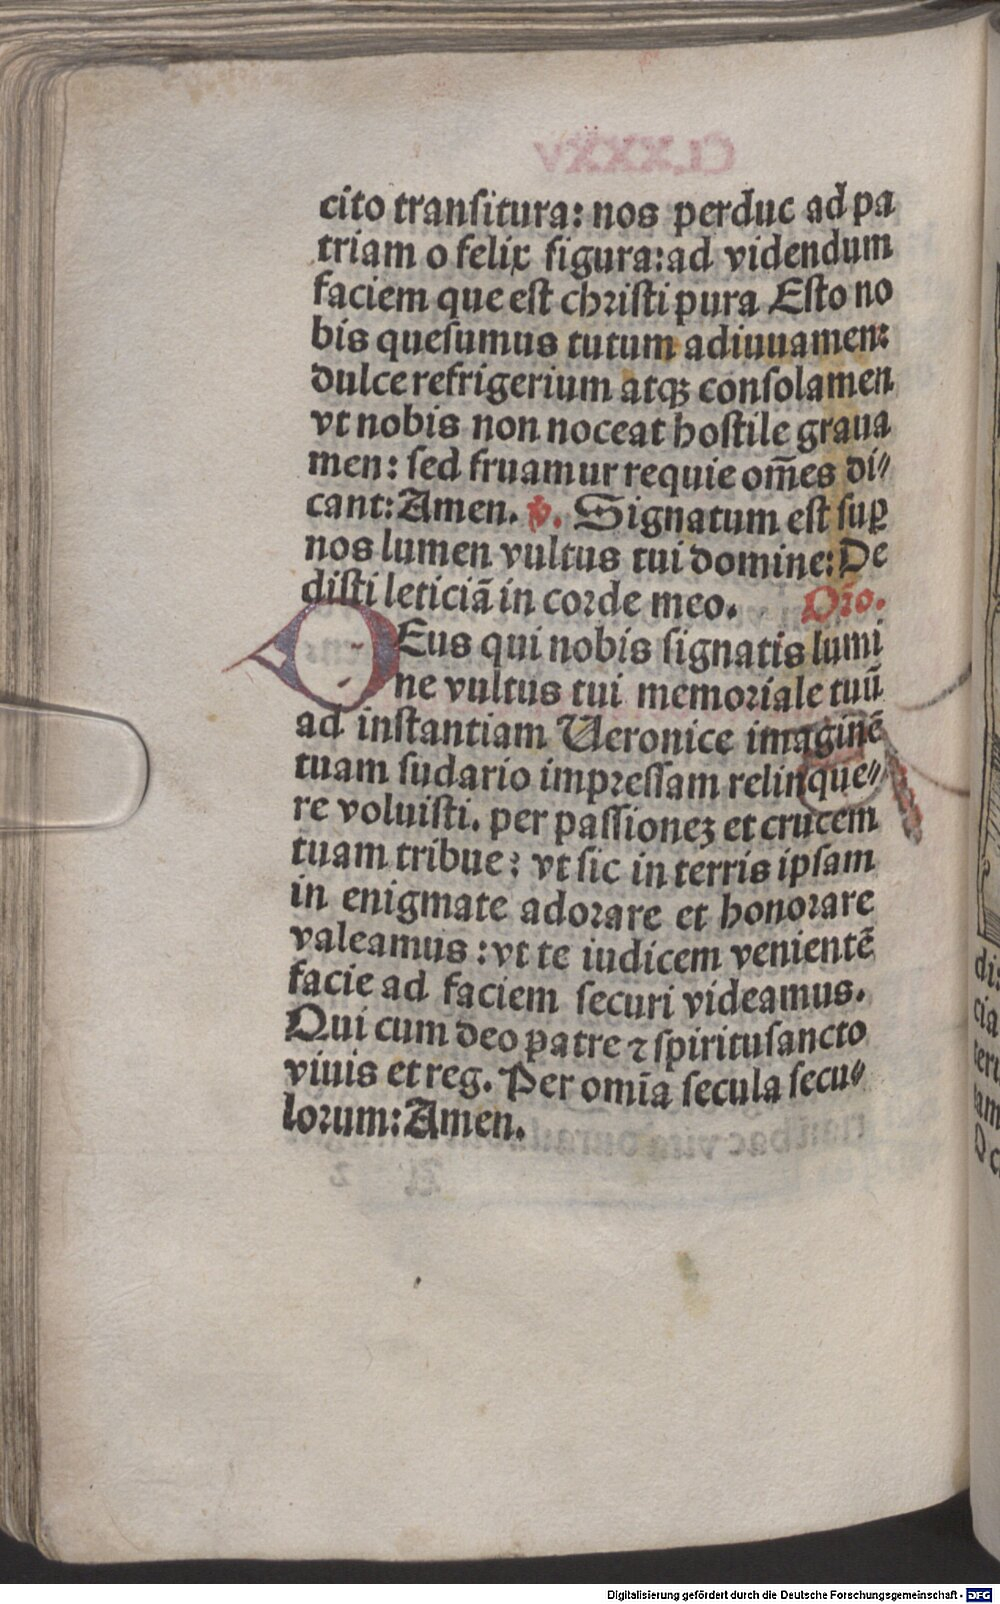 cito transitura: nos perduc ad pa
triam o felix figura:ad videndum
faciem que est christi pura Esto no
bis quesumus tutum adiuuamen:
dulce refrigerium atqꝫ consolamen
vt nobis non noceat hostile graua
men: sed fruamur requie om̄es di⸗
cant:Amen. ℣. Signatum est suꝑ
nos lumen vultus tui domine:De
disti leticiā in corde meo. Or̄o.
DEus qui nobis signatis lumi
ne vultus tui memoriale tuū
ad instantiam Ueronice imaginē
tuam sudario impressam relinque⸗
re voluisti. per passioneꝫ et crucem
tuam tribue: vt sic in terris ipsam
in enigmate adorare et honorare
valeamus :vt te iudicem venientē
facie ad faciem securi videamus.
Qui cum deo patre ⁊ spiritusancto
viuis et reg. Per om̄ia secula secu⸗
lorum:Amen.
Digitalisierung gefördert durch die Deutsche Forschungsgemeinschaft - DFG